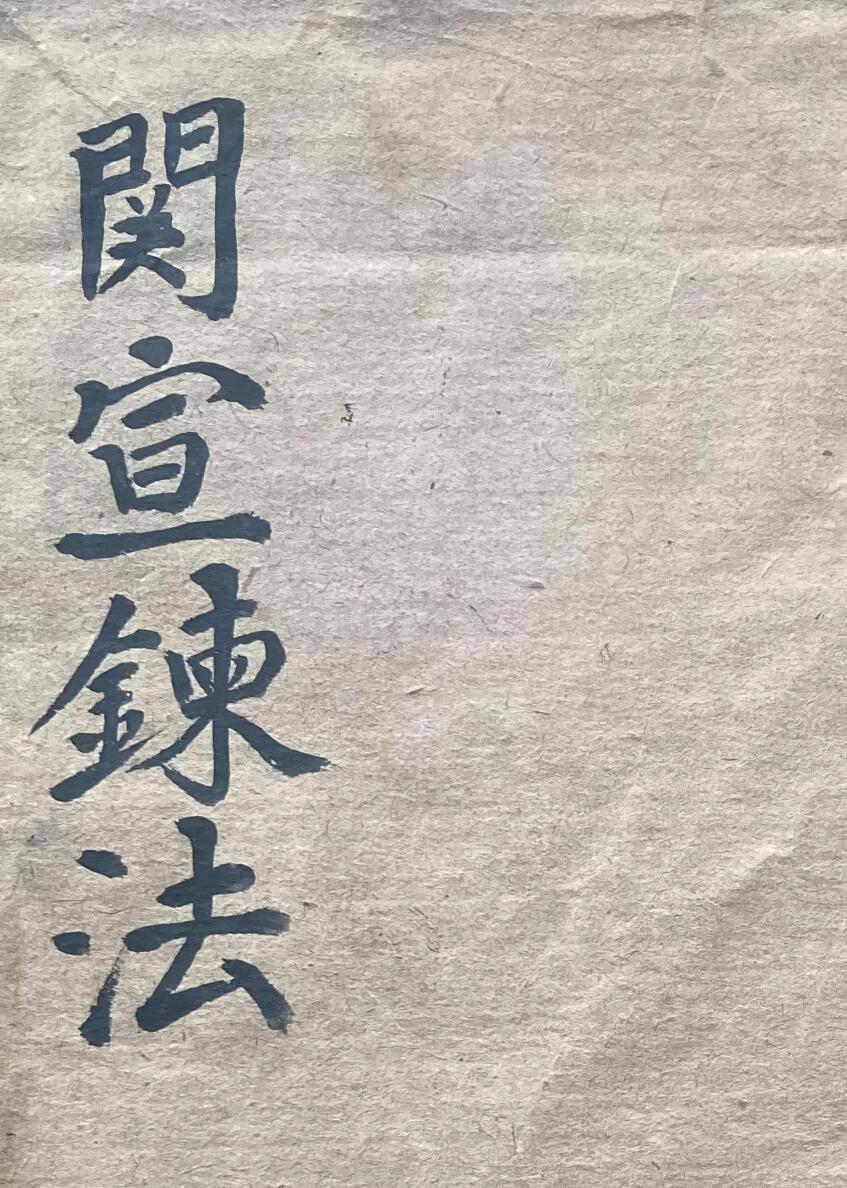 関宣鍊法